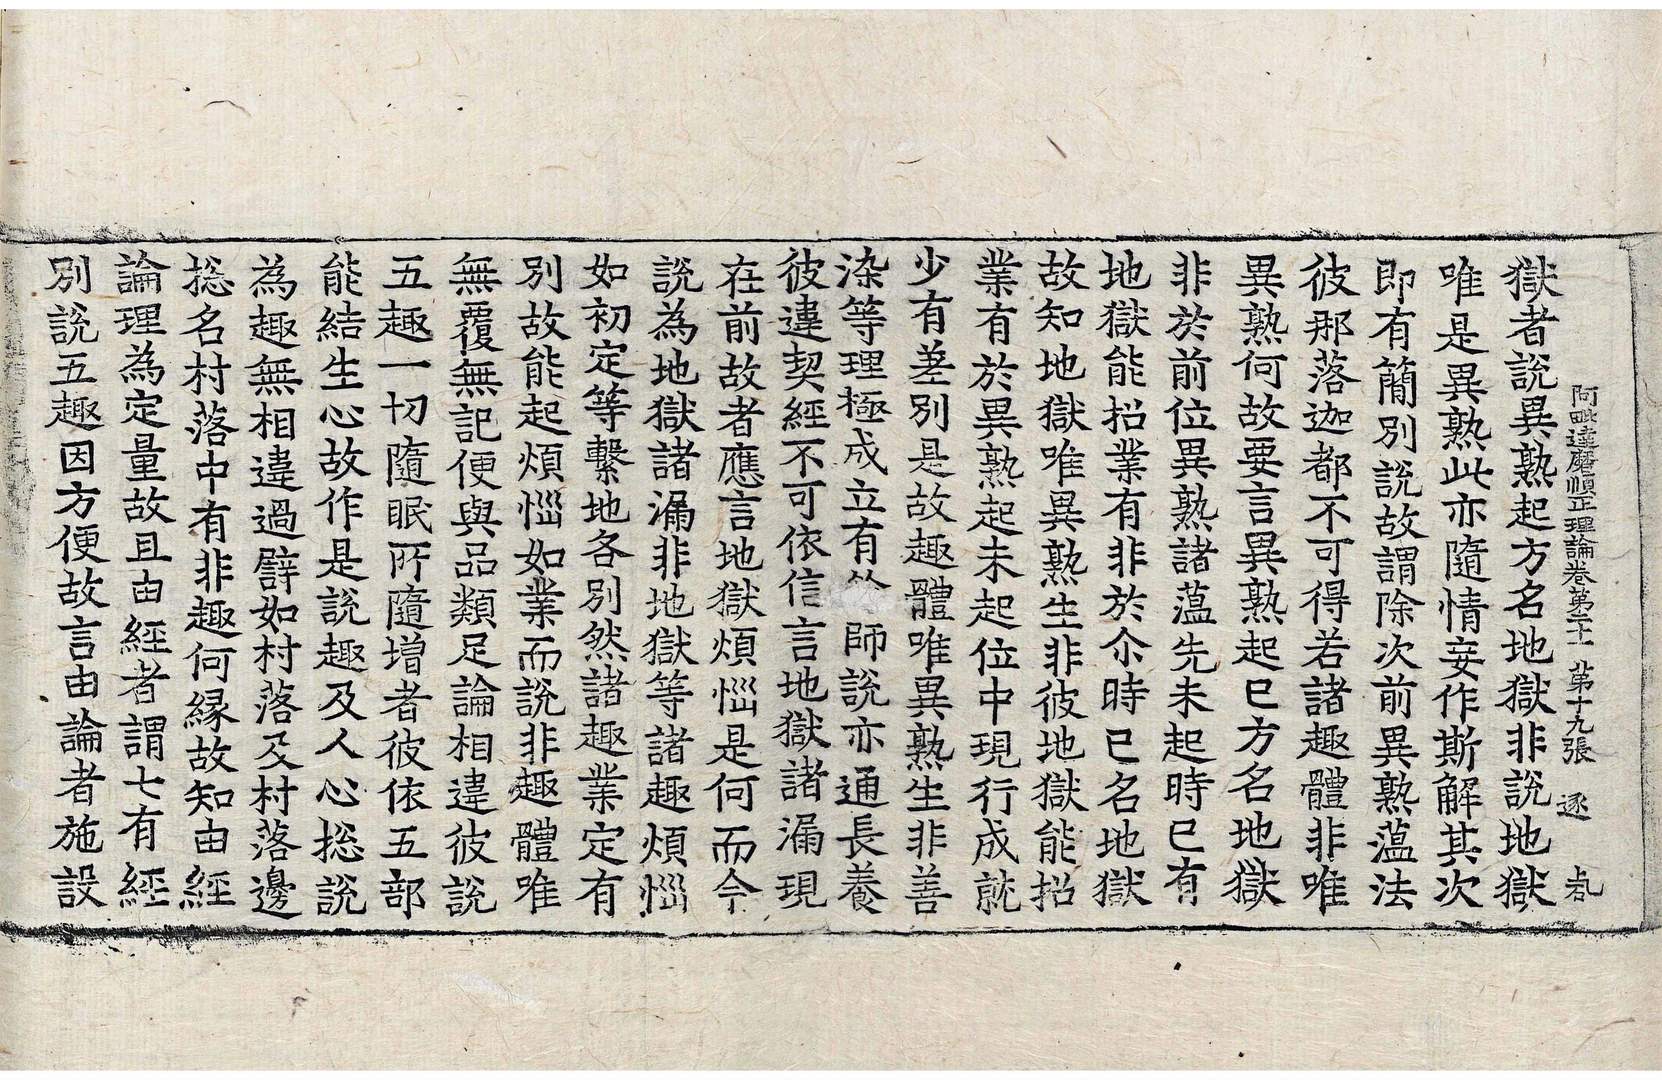 阿毗達磨順正理論卷第二十一 第十九張 逐
獄者說異熟起方名地獄非說地獄
唯是異熟此亦隨情妄作斯解其次
即有簡別說故謂除次前異熟薀法
彼那落迦都不可得若諸趣體非唯
異熟何故要言異熟起已方名地獄
非於前位異熟諸薀先未起時已有
地獄能招業有非於尒時已名地獄
故知地獄唯異熟生非彼地獄能招
業有於異熟起未起位中現行成就
少有差別是故趣體唯異熟生非善
染等理極成立有餘師說亦通長養
彼違契經不可依信言地獄諸漏現
在前故者應言地獄煩惱是何而今
說為地獄諸漏非地獄等諸趣煩惱
如初定等繫地各別然諸趣業定有
別故能起煩惱如業而說非趣體唯
無覆無記便與品類足論相違彼說
五趣一切隨眠所隨增者彼依五部
能結生心故作是說趣及人心揔說
為趣無相違過譬如村落及村落邊
揔名村落中有非趣何縁故知由經
論理為定量故且由經者謂七有經
別說五趣因方便故言由論者施設